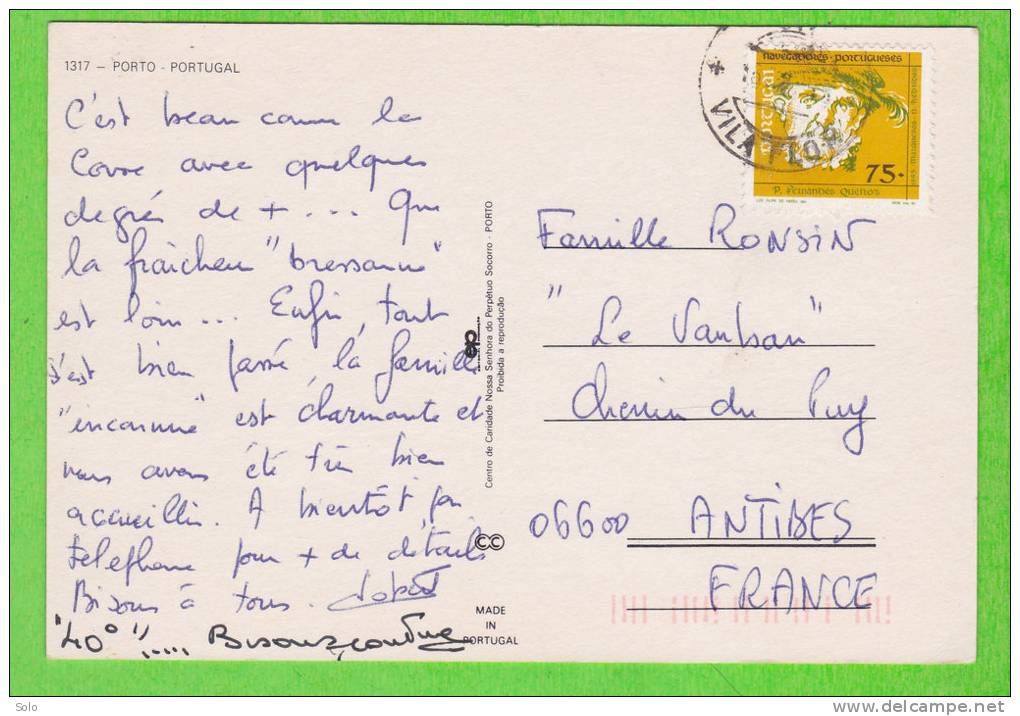 1317 – PORTO - PORTUGAL
C'est beau comme la
Corse avec quelques
degrés de + ... Que
la fraîcheur "bressanne"
est loin ... Enfin, tout
s'est bien passé, la famille
"inconnue" est charmante et
nous avons été très bien
accueillis. A bientôt par
telephone pour + de détails
Bisous à tous.
"40°"..... Bisous
Centro de Caridade Nossa Senhora do Perpétuo Socorro - PORTO
Proibida a reprodução
ep
CC
MADE
IN
PORTUGAL
* VILA FLOR
navegadores portugueses
PORTUGAL
75.
P. Fernandes Queiros
Famille RONSIN
"Le Vauban"
Chemin du Puy
06600 ANTIBES
FRANCE
Solo
delcampe.net